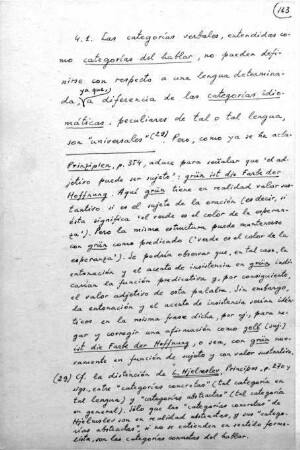 163
4.1. Las categorías verbales, entendidas co-
mo categorías del hablar, no pueden defi-
nirse con respecto a una lengua determina-
da, ya que, a diferencia de las categorías idio-
máticas, peculiares de tal o tal lengua,
son "universales" (29). Pero, como ya se ha acla-
Prinzipien, p. 354, aduce para señalar que 'el ad-
jetivo puede ser sujeto': grün ist die Farbe der
Hoffnung. Aquí grün tiene en realidad valor sus-
tantivo si es el sujeto de la oración (es decir, si
ésta significa 'el verde es el color de la esperan-
za'). Pero la misma estructura puede mantenerse
con grün como predicado ('verde es el color de la
esperanza'). Se podría observar que, en tal caso, la
entonación y el acento de insistencia en grün indi-
carían la función predicativa y, por consiguiente,
el valor adjetivo de esta palabra. Sin embargo,
la entonación y el acento de insistencia serían idén-
ticos en la misma frase dicha, por ej., para ne-
gar y corregir una afirmación como gelb (suj.)
ist die Farbe der Hoffnung, o sea, con grün nue-
vamente en función de sujeto y con valor sustantivo.
(29) Cf. la distinción de L. Hjelmslev, Principes, p. 270 y
sigs., entre "categorías concretas" (tal categoría en
tal lengua) y "categorías abstractas" (tal categoría
en general). Sólo que las "categorías concretas" de
Hjelmslev son en realidad abstractas, y sus "catego-
rías abstractas", si no se entienden en sentido forma-
lista, son las categorías del hablar.